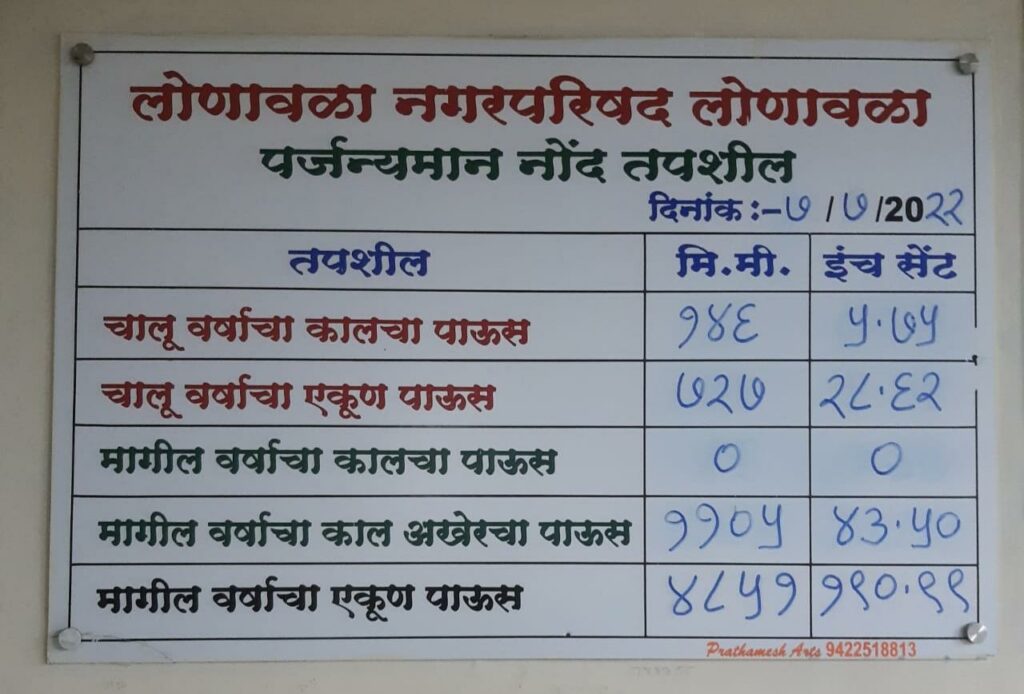 लोणावळा नगरपरिषद लोणावळा
पर्जन्यमान नोंद तपशील
दिनांक :-७ / ७ /20२२
तपशील मि.मी. इंच सेंट
चालू वर्षाचा कालचा पाऊस १४६ ५.७५
चालू वर्षाचा एकूण पाऊस ७२७ २८.६२
मागील वर्षाचा कालचा पाऊस ० ०
मागील वर्षाचा काल अखेरचा पाऊस ११०५ ४३.५०
मागील वर्षाचा एकूण पाऊस ४८५१ १९०.९९
Prathamesh Arts 9422518813